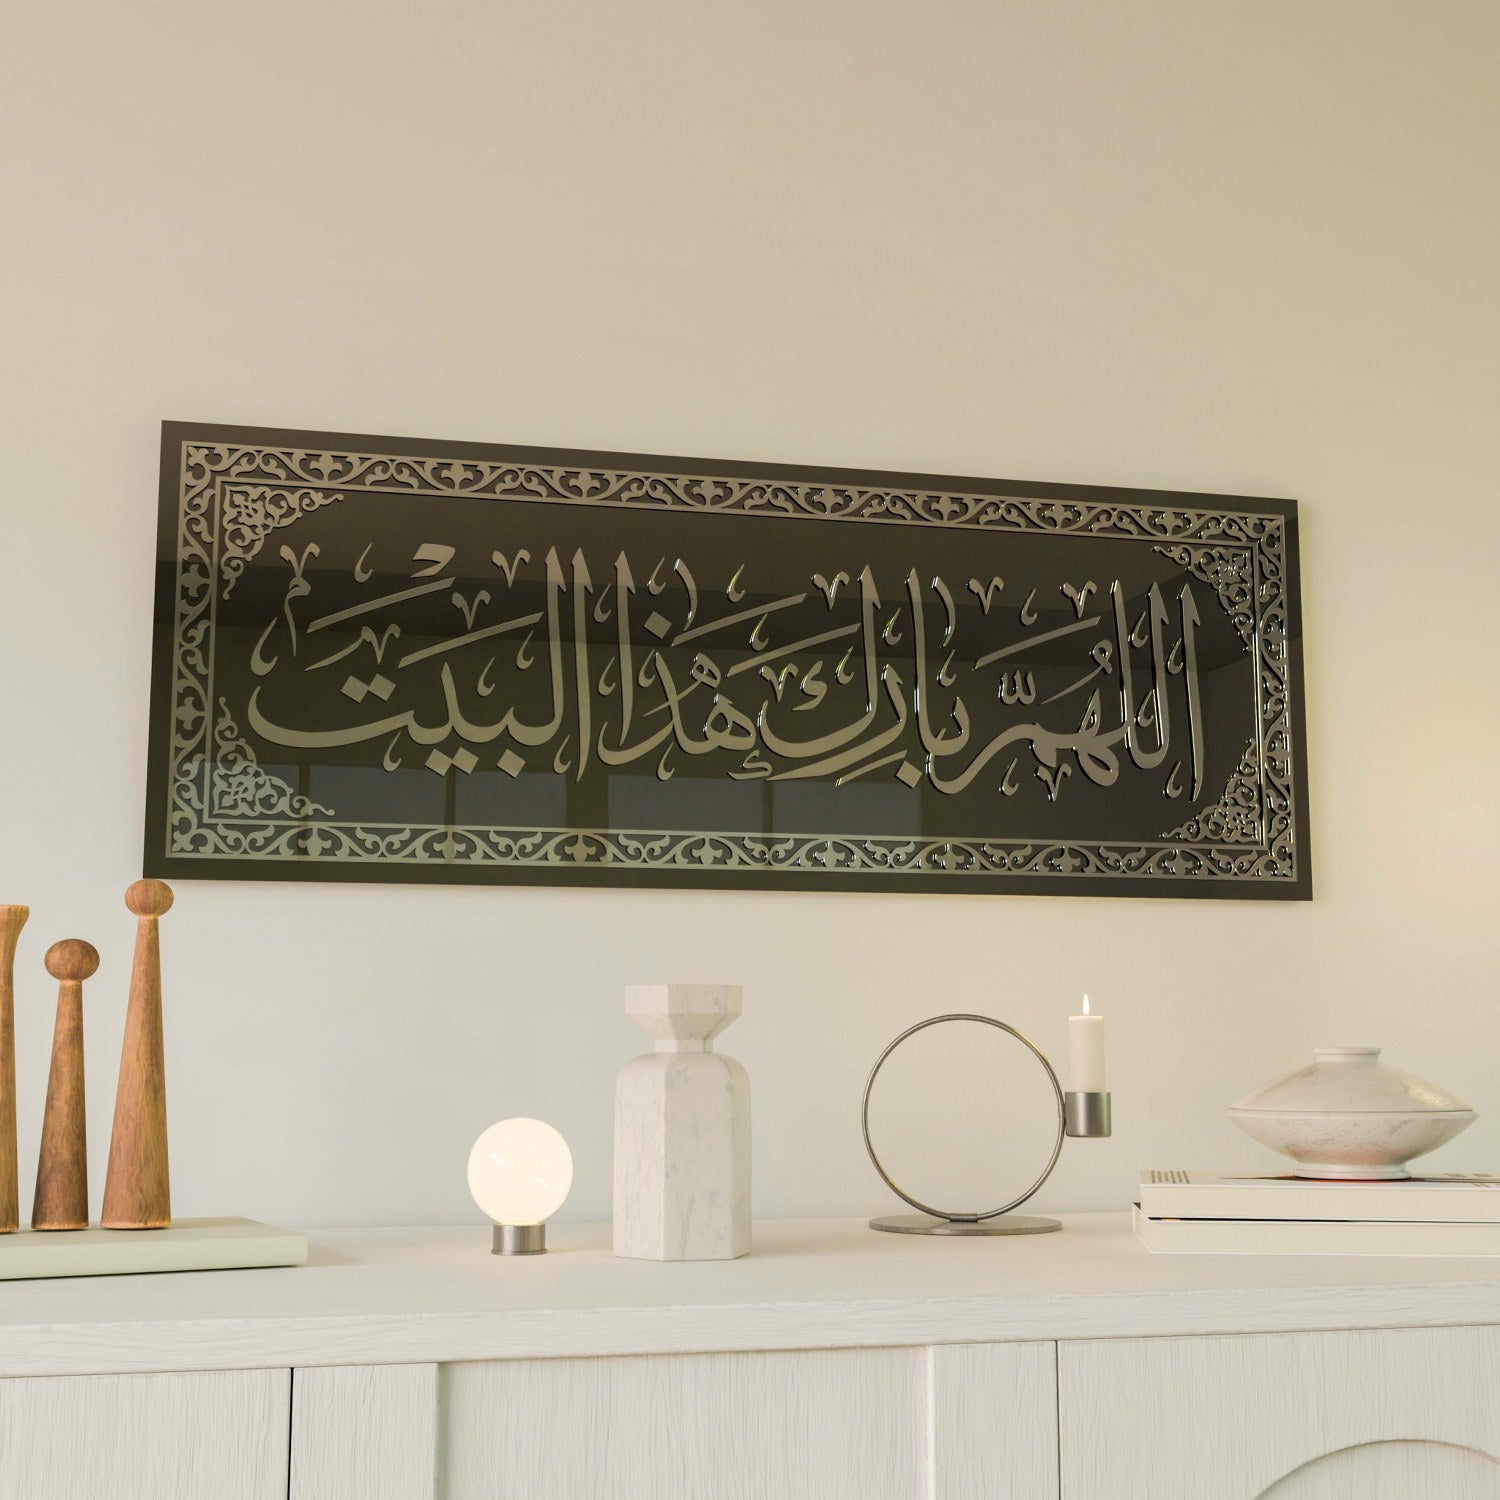 اللَّهُمَّ بَارِكْ هَذَا الْبَيْتَ